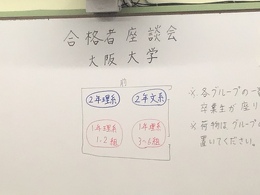 合格者座談会
大阪大学
前
2年理系
2年文系
1年理系
1・2組
1年理系
3〜6組
※各グループの一
卒業生が座り
※荷物はグループ
置いてください。